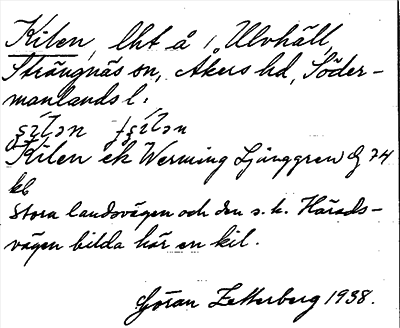 Kilen, lht å i Ulvhäll,
Strängnäs sn, Åkers hd, Söder-
manlands l.
Kilen ek Werming Ljunggren Dj 74
kb
Stora landsvägen och den s. k. Härads-
vägen bilda här en kil.
Göran Zetterberg 1938.